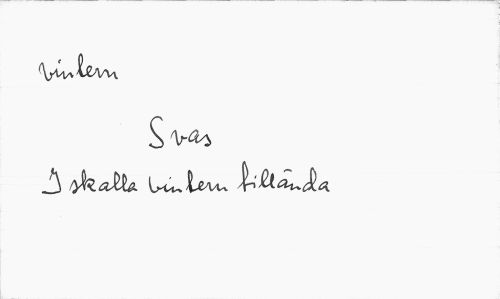 vintern
Svas
I skalla vintern tillända